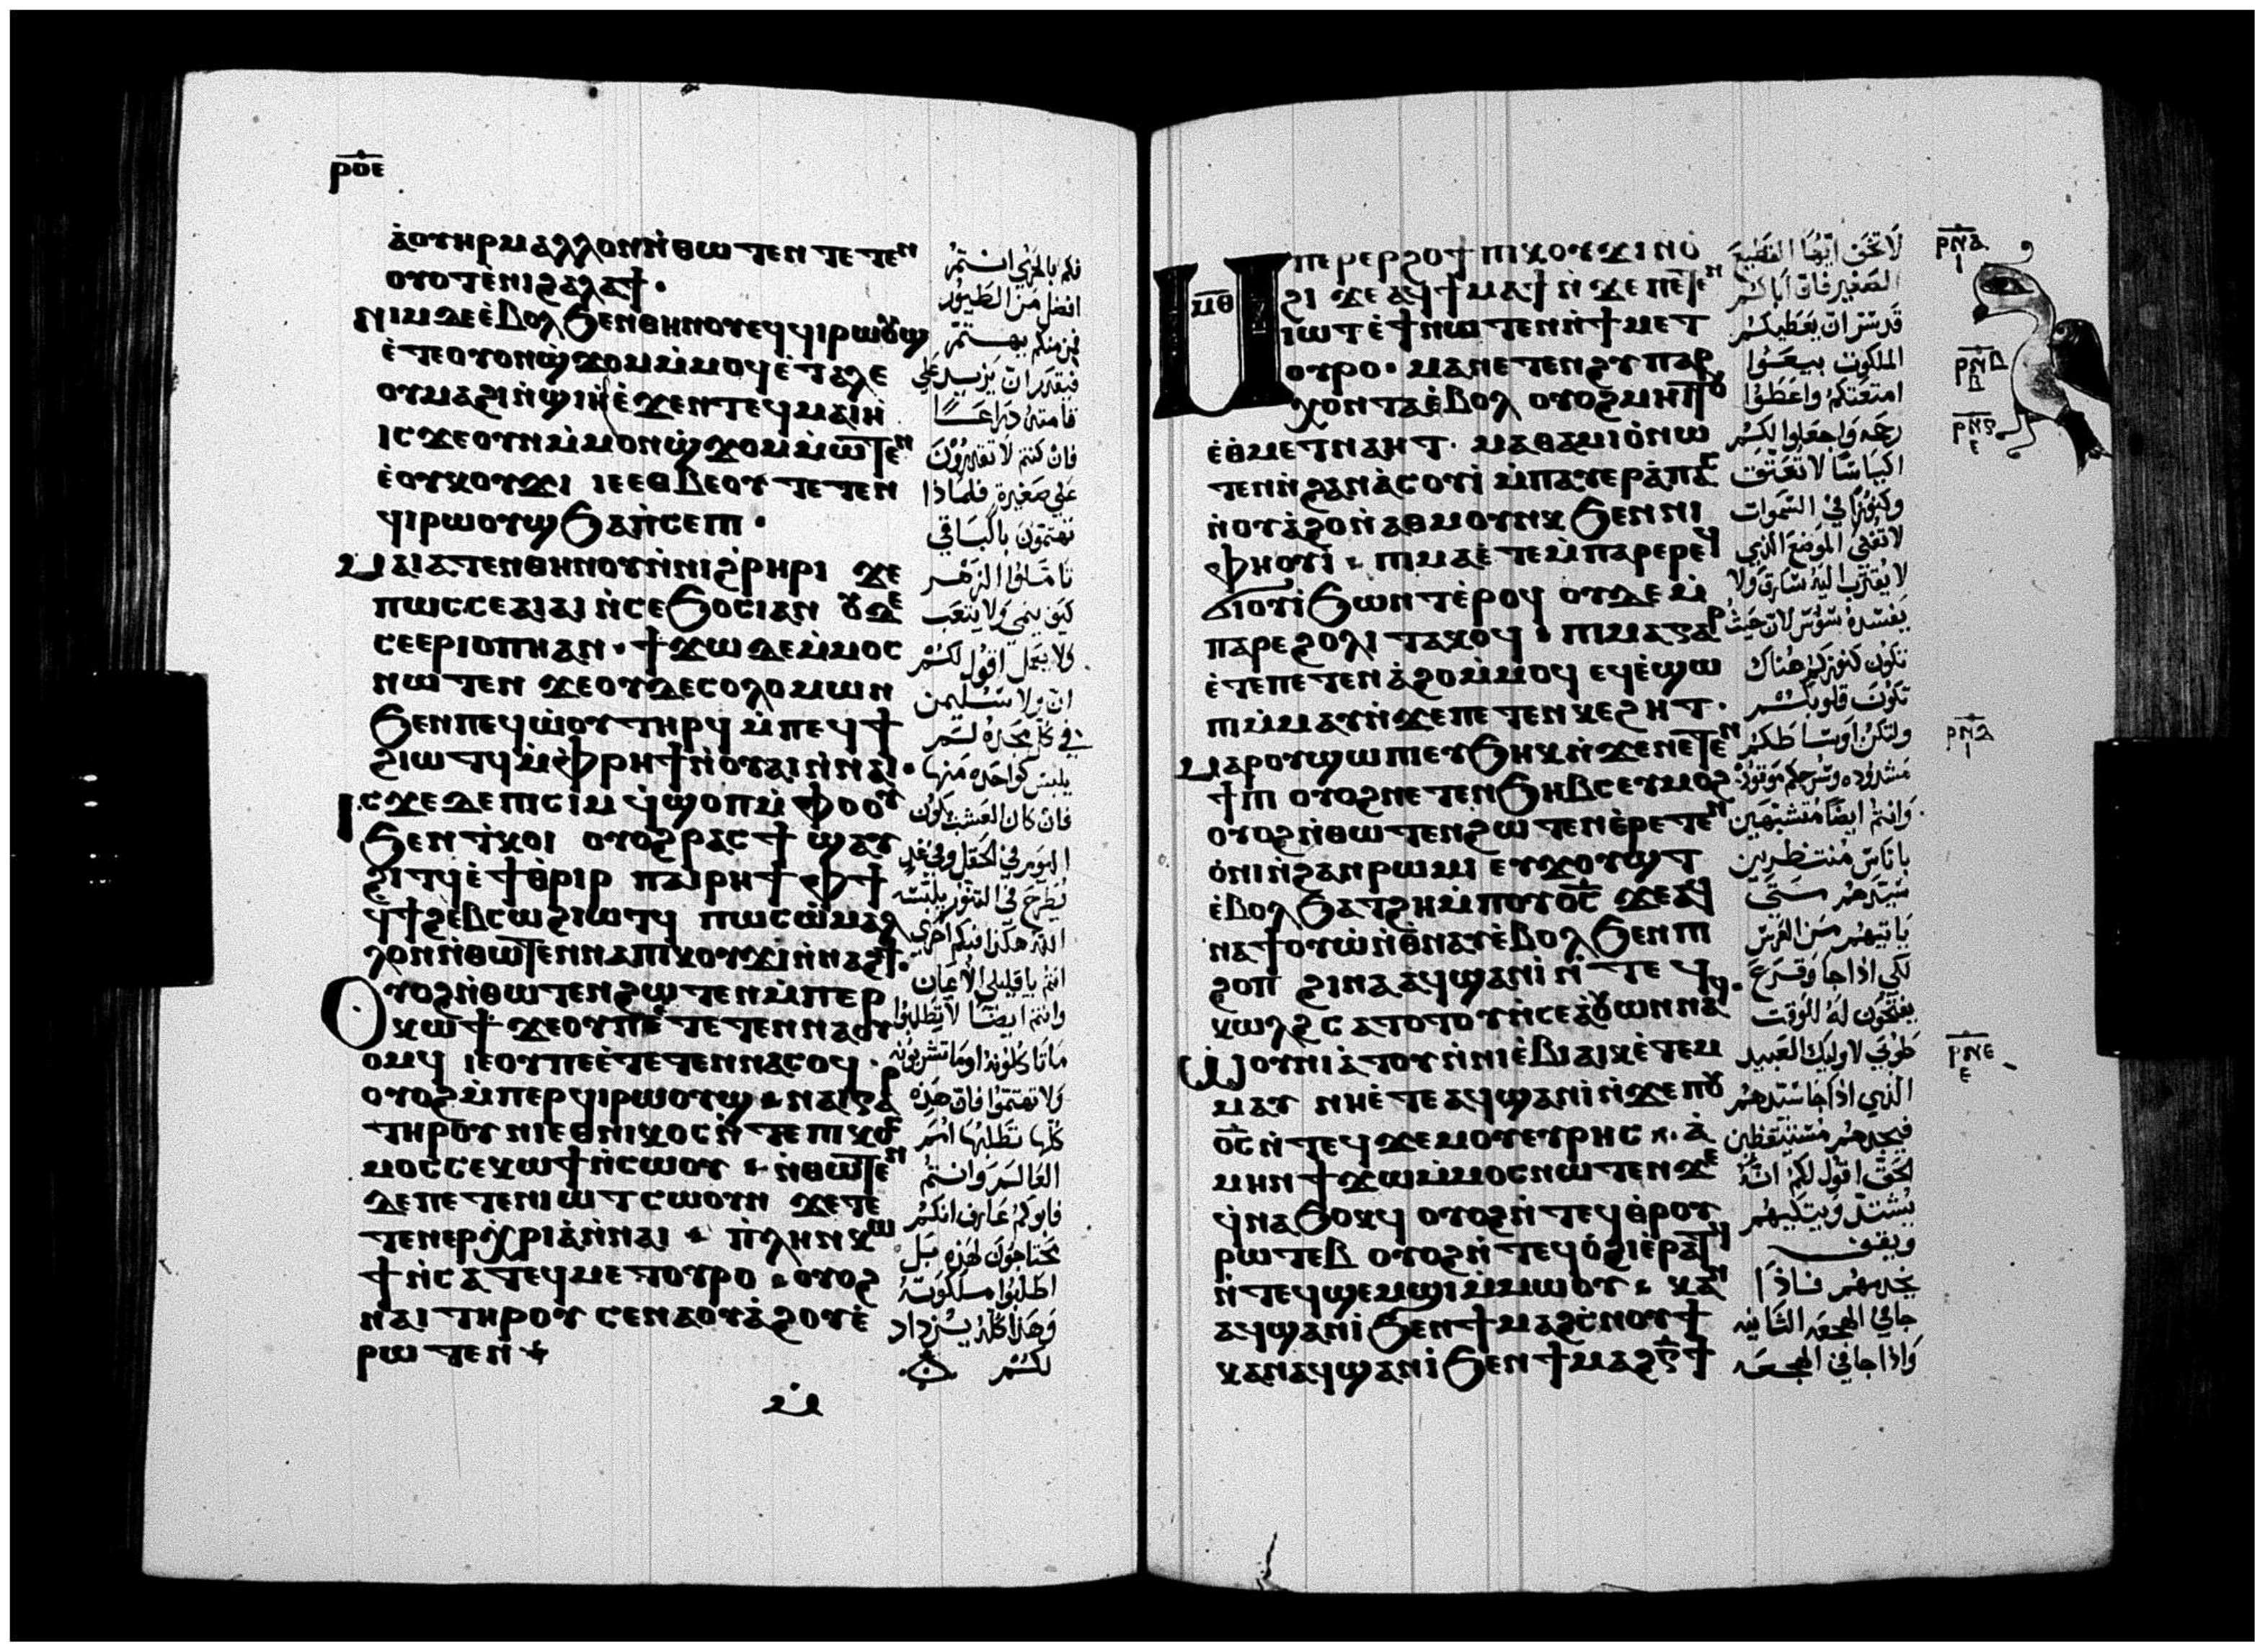 ⲣⲟⲉ
ⲁ̇ⲟⲩⲏⲣ ⲙⲁⲗⲗⲟⲛ ⲛ̇ⲑⲱⲧⲉⲛ ⲧⲉⲧⲉⲛ
ⲟⲩⲟⲧ ⲉ̇ⲛⲓϩⲁⲗⲁϯ ·
ⲛⲓⲙ ⲇⲉ ⲉ̇ⲃⲟⲗ ϧⲉⲛ ⲑⲏⲛⲟⲩ ⲉϥϥⲓⲣⲱⲟⲩϣ
ⲉ̇ⲧⲉ ⲟⲩⲟⲛϣ̇ϫⲟⲙ ⲙ̇ⲙⲟϥ ⲉ̇ⲧⲁⲗⲉ
ⲟⲩⲙⲁϩⲓ ⲛ̇ϣⲓⲏ ⲉ̇ϫⲉⲛ ⲧⲉϥⲙⲁⲓⲏ
ⲓⲥϫⲉ ⲟⲩⲛ ⲙ̇ⲙⲟⲛϣ̇ϫⲟⲙ ⲙ̇ⲱⲧⲉⲛ
ⲉ̇ⲟⲩⲕⲟⲩϫⲓ ⲓⲉ ⲉⲑⲃⲉⲟⲩ ⲧⲉⲧⲉⲛ
ϥⲓⲣⲱⲟⲩϣ ϧⲁ ⲛ̇ⲥⲉⲡⲓ ·
ⲙⲁⲓⲁⲧⲉⲛ ⲑⲏⲛⲟⲩ ⲛ̇ⲛⲓϩ̇ⲣⲏⲣⲓ ϫⲉ
ⲡⲱⲥ ⲥⲉⲁⲓⲁⲓ ⲛ̇ⲥⲉϧⲟⲥⲓ ⲁⲛ ⲟⲩⲇⲉ
ⲥⲉⲉⲣⲓⲟⲡⲏ ⲁⲛ · ϯϫⲱ ⲇⲉ ⲙ̇ⲙⲟⲥ
ⲛⲱⲧⲉⲛ ϫⲉ ⲟⲩⲇⲉ ⲥⲟⲗⲟⲙⲱⲛ
ϧⲉⲛ ⲡⲉϥⲱ̇ⲟⲩ ⲧⲏⲣϥ ⲙ̇ⲡⲉϥϯ
ϩⲓⲱⲧϥ ⲙ̇ⲫ̇ⲣⲏϯ ⲛ̇ⲟⲩⲁⲓ ⲛ̇ⲛⲁⲓ ·
ⲓⲥϫⲉ ⲇⲉ ⲡⲓⲥⲓⲙ ϥ̇ϣⲟⲡ ⲙ̇ⲫⲟⲟⲩ
ϧⲉⲛ ⲧ̇ⲕⲟⲓ ⲟⲩⲟϩ ⲣⲁⲥϯ ϣ̇ⲁⲩ
ϩⲓⲧϥ ⲉ̇ϯⲑ̇ⲣⲓⲣ ⲡⲁⲓⲣⲏϯ ⲫϯ
ϥ̇ϯϩⲉⲃⲥⲱ ϩⲓⲱⲧϥ ⲡⲱⲥⲱ ⲙⲁⲗ
ⲗⲟⲛ ⲛ̇ⲑⲱⲧⲉⲛ ⲛⲁ ⲡⲓⲕⲟⲩϫⲓ ⲛ̇ⲛⲁϩϯ ·
ⲟⲩⲟϩ ⲛ̇ⲑⲱⲧⲉⲛ ϩⲱⲧⲉⲛ ⲙ̇ⲡⲉⲣ
ⲕⲱϯ ϫⲉ ⲟⲩ ⲡⲉⲧⲉⲧⲉⲛⲛⲁⲟⲩ
ⲟⲙϥ ⲓⲉ ⲟⲩ ⲡⲉ ⲉ̇ⲧⲉⲧⲉⲛⲛⲁⲥⲟϥ ·
ⲟⲩⲟϩ ⲙ̇ⲡⲉⲣϥⲓⲣⲱⲟⲩϣ · ⲛⲁⲓ ⲅⲁⲣ
ⲧⲏⲣⲟⲩ ⲛⲓⲉⲑⲛⲓⲕⲟⲥ ⲛ̇ⲧⲉ ⲡⲓⲕⲟⲥ
ⲙⲟⲥ ⲥⲉⲕⲱϯ ⲛ̇ⲥⲱⲟⲩ · ⲛ̇ⲑⲱⲧⲉⲛ
ⲇⲉ ⲡⲉⲧⲉⲛⲓⲱⲧ ⲥⲱⲟⲩⲛ ϫⲉ ⲧⲉ
ⲧⲉⲛⲉⲣⲭ̇ⲣⲓⲁ̇ ⲛ̇ⲛⲁⲓ · ⲡ̇ⲗⲏⲛ ⲕⲱ
ϯ ⲛ̇ⲥⲁ ⲧⲉϥⲙⲉⲧⲟⲩⲣⲟ · ⲟⲩⲟϩ
ⲛⲁⲓ ⲧⲏⲣⲟⲩ ⲥⲉⲛⲁⲟⲩⲁ̇ϩⲟⲩ ⲉ̇
ⲣⲱⲧⲉⲛ
فكم بالحري انتم
افضل من الطيور
فمن منكم يهتم
فيقدر ان يزيد علي
قامته ذراعا
فان كنتم لا تقدرون
علي صغيرة فلماذا
تهتمون بالباقي
تاملوا الزهر
كيف ينمي ولا يتعب
ولا يعمل اقول لكم
ان ولا سليمن
في كل مجده لم
يلبس كواحده منها
فان كان العشب يكون
اليوم في الحقل وفي غد
يطرح في التنور يلبسه
الله هكذا فكم احري
انتم يا قليلي الامان
وانتم ايضا لا تطلبوا
ماتاكلونه او ماتشربونه
ولا تهتموا فان هذه
كلها تطلبها امم
العالم وانتم
فابوكم عارف انكم
تحتاجون لهذه بل
اطلبوا ملكوته
وهذا كله يزداد
لكم
ⲙ̅ⲑ̅
ⲙⲡⲉⲣⲉⲣϩⲟϯ ⲡⲓⲕⲟⲩϫⲓ ⲛ̇ⲟ
ϩⲓ ϫⲉ ⲁϥϯⲙⲁϯ ⲛ̇ϫⲉ ⲡⲉⲧⲉⲛ
ⲓⲱⲧ ⲉ̇ϯ ⲛⲱⲧⲉⲛ ⲛ̇ϯⲙⲉⲧ
ⲟⲩⲣⲟ · ⲙⲁ ⲛⲉⲧⲉⲛϩⲩⲡⲁⲣ
ⲭⲟⲛⲧⲁ ⲉ̇ⲃⲟⲗ ⲟⲩⲟϩ ⲙⲏⲓⲧⲟⲩ
ⲉ̇ⲑⲙⲉⲧⲛⲁⲏⲧ · ⲙⲁⲑⲁⲙⲓⲟ̇ ⲛⲱ
ⲧⲉⲛ ⲛ̇ϩⲁⲛⲁ̇ⲥⲟⲩⲓ̇ ⲙ̇ⲡⲁⲩⲉⲣⲁ̇ⲡⲁⲥ
ⲛ̇ⲟⲩⲁ̇ϩⲟ ⲛ̇ⲁⲑⲙⲟⲩⲛⲕ ϧⲉⲛ ⲛⲓ
ⲫⲏⲟⲩⲓ̇ · ⲡⲓⲙⲁ ⲉ̇ⲧⲉ ⲙ̇ⲡⲁⲣⲉ ⲣⲉϥ
ϭⲓⲟⲩⲓ̇ ϧⲱⲛⲧ ⲉ̇ⲣⲟϥ ⲟⲩⲇⲉ ⲙ̇
ⲡⲁⲣⲉ ϩⲟⲗⲓ ⲧⲁⲕⲟϥ · ⲡⲓⲙⲁ ⲅⲁⲣ
ⲉ̇ⲧⲉ ⲡⲉⲧⲉⲛⲁ̇ϩⲟ ⲙ̇ⲙⲟϥ ⲉϥⲉ̇ϣⲱ
ⲡⲓ ⲙ̇ⲙⲁⲩ ⲛ̇ϫⲉ ⲡⲉⲧⲉⲛⲕⲉϩⲏⲧ ·
ⲙⲁⲣⲟⲩϣⲱⲡⲓ ⲉⲩϧⲏⲕ ⲛ̇ϫⲉ ⲛⲉⲧⲉⲛ
ϯⲡⲓ ⲟⲩⲟϩ ⲛⲉⲧⲉⲛϧⲏⲃⲥ ⲉⲩⲙⲟϩ
ⲟⲩⲟϩ ⲛ̇ⲑⲱⲧⲉⲛ ϩⲱⲧⲉⲛ ⲉ̇ⲣⲉⲧⲉⲛ
ⲟ̇ⲛⲓ ⲛ̇ϩⲁⲛⲣⲱⲙⲓ ⲉⲩϫⲟⲩϣⲧ
ⲉ̇ⲃⲟⲗ ϧⲁⲧϩⲏ ⲙ̇ⲡⲟⲩⲟ̅ⲥ̅ ϫⲉ ⲁϥ
ⲛⲁϯⲟⲩⲱ̇ ⲛ̇ⲑ̇ⲛⲁⲩ ⲉ̇ⲃⲟⲗ ϧⲉⲛ ⲡⲓ
ϩⲟⲡ ϩⲓⲛⲁ ⲁϥϣⲁⲛⲓ̇ ⲛ̇ⲧⲉϥ
ⲕⲱⲗϩ ⲥⲁⲧⲟⲧⲟⲩ ⲛ̇ⲥⲉⲁ̇ⲟⲩⲱⲛ ⲛⲁϥ ·
ⲱ̇ⲟⲩⲛⲓⲁ̇ⲧⲟⲩ ⲛ̇ⲛⲓⲉ̇ⲃⲓⲁⲓⲕ ⲉ̇ⲧⲉⲙ
ⲙⲁⲩ ⲛⲏ ⲉ̇ⲧⲉ ⲁϥϣⲁⲛⲓ̇ ⲛ̇ϫⲉ ⲡⲟⲩ
ⲟ̅ⲥ̅ ⲛ̇ⲧⲉϥϫⲉⲙⲟⲩ ⲉⲩⲣⲏⲥ · ⲁ̇
ⲙⲏⲛ ϯϫⲱ ⲙ̇ⲙⲟⲥ ⲛⲱⲧⲉⲛ ϫⲉ
ϥ̇ⲛⲁϧⲟⲕϥ ⲟⲩⲟϩ ⲛ̇ⲧⲉϥⲑⲣⲟⲩ
ⲣⲱⲧⲉⲃ ⲟⲩⲟϩ ⲛ̇ⲧⲉϥⲟ̇ϩⲓ ⲉ̇ⲣⲁⲧϥ
ⲛ̇ⲧⲉϥϣⲉⲙϣⲓ ⲙ̇ⲙⲱⲟⲩ · ⲕⲁⲛ
ⲁϥϣⲁⲛⲓ̇ ϧⲉⲛ ϯⲙⲁϩⲥ̇ⲛⲟⲩϯ
ⲕⲁⲛ ⲁϥϣⲁⲛⲓ̇ ϧⲉⲛ ϯⲙⲁϩⲅ̅ϯ
لا تخف ايها القطيع
الصغير فان اباكم
قد سر ان يعطيكم
الملكوت بيعوا
امتعتكم واعطوا
رحمه واجعلوا لكم
اكياسا لا تعتق
وكنوزا في السموات
لا تفني الموضع الذي
لا يقترب اليه سارق ولا
يفسده سوس لان حيث
تكون كنوزكم هناك
تكون قلوبكم
ولتكن اوساطكم
مشدوده وسرجكم موقوده
وانتم ايضا متشبهين
باناس منتظرين
سيدهم متي
ياتيهم من العرس
لكي اذا جا وقرع
يفتحون له للوقت
طوبي لاوليك العبيد
الذي اذا جا سيدهم
فيجدهم مستيقظين
الحق اقول لكم انه
يشتد ويتكيهم
ويقف
يخدمهم فاذا
جا في الهجعه الثانيه
واذا جا في الهجعه
ⲣⲛⲇ
ⲣⲛⲉ
ⲉ